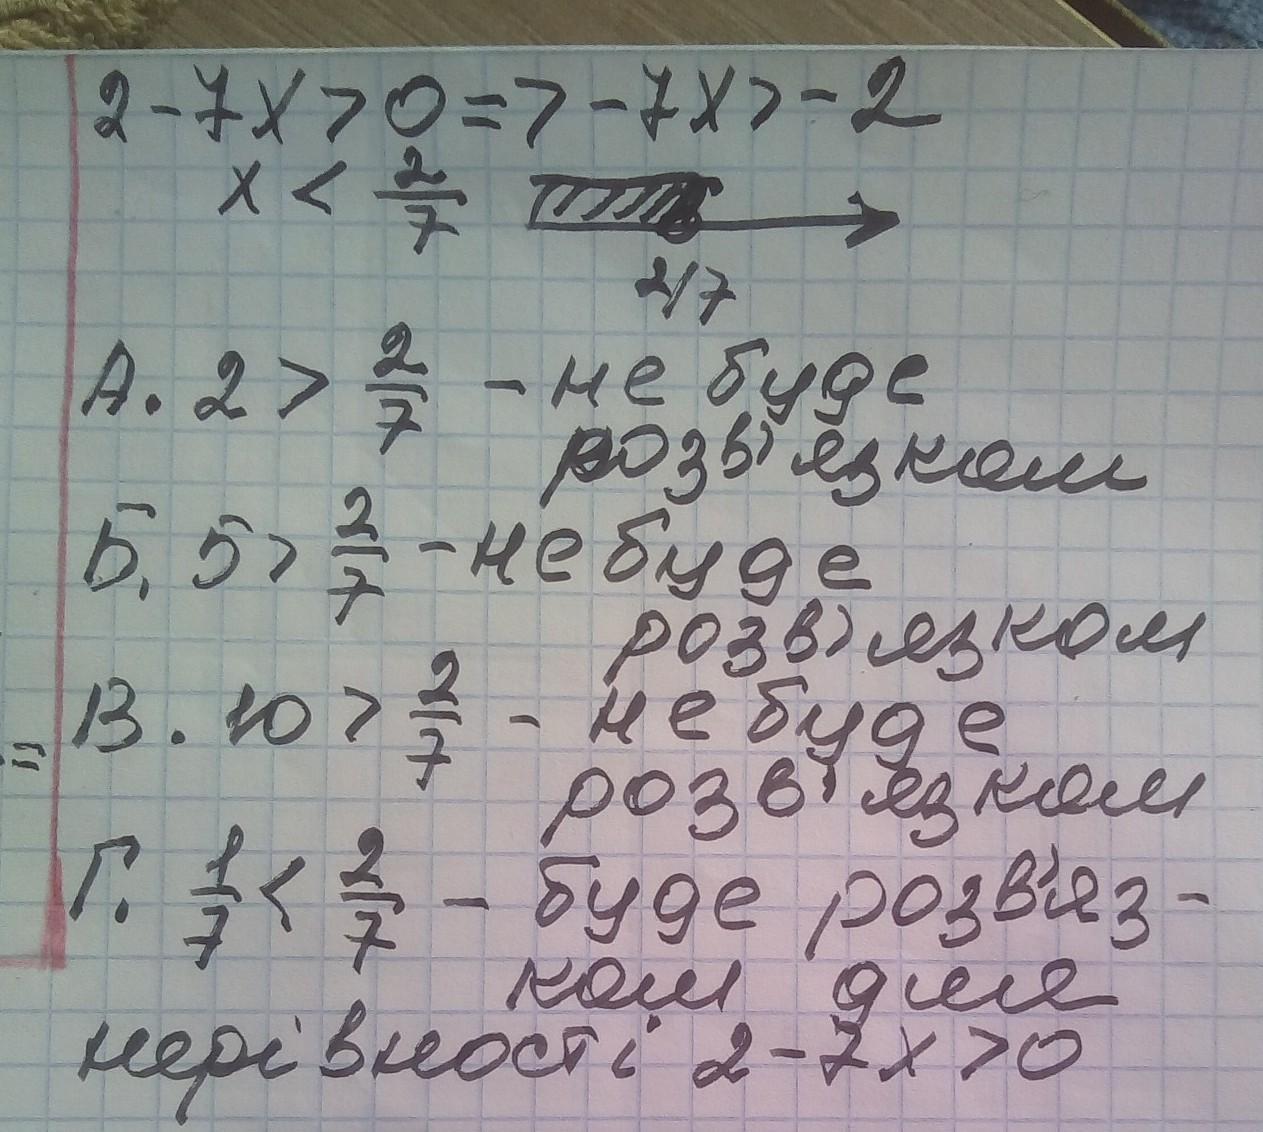 2-7x>0=>-7x>-2
x < 2/7
2/7
А. 2 > 2/7 - не буде
розв'язком
Б. 5 > 2/7 - не буде
розв'язком
=
В. 10 > 2/7 - не буде
розв'язком
Г. 1/7 < 2/7 - буде розв'яз-
ком для
нерівності 2-7x>0